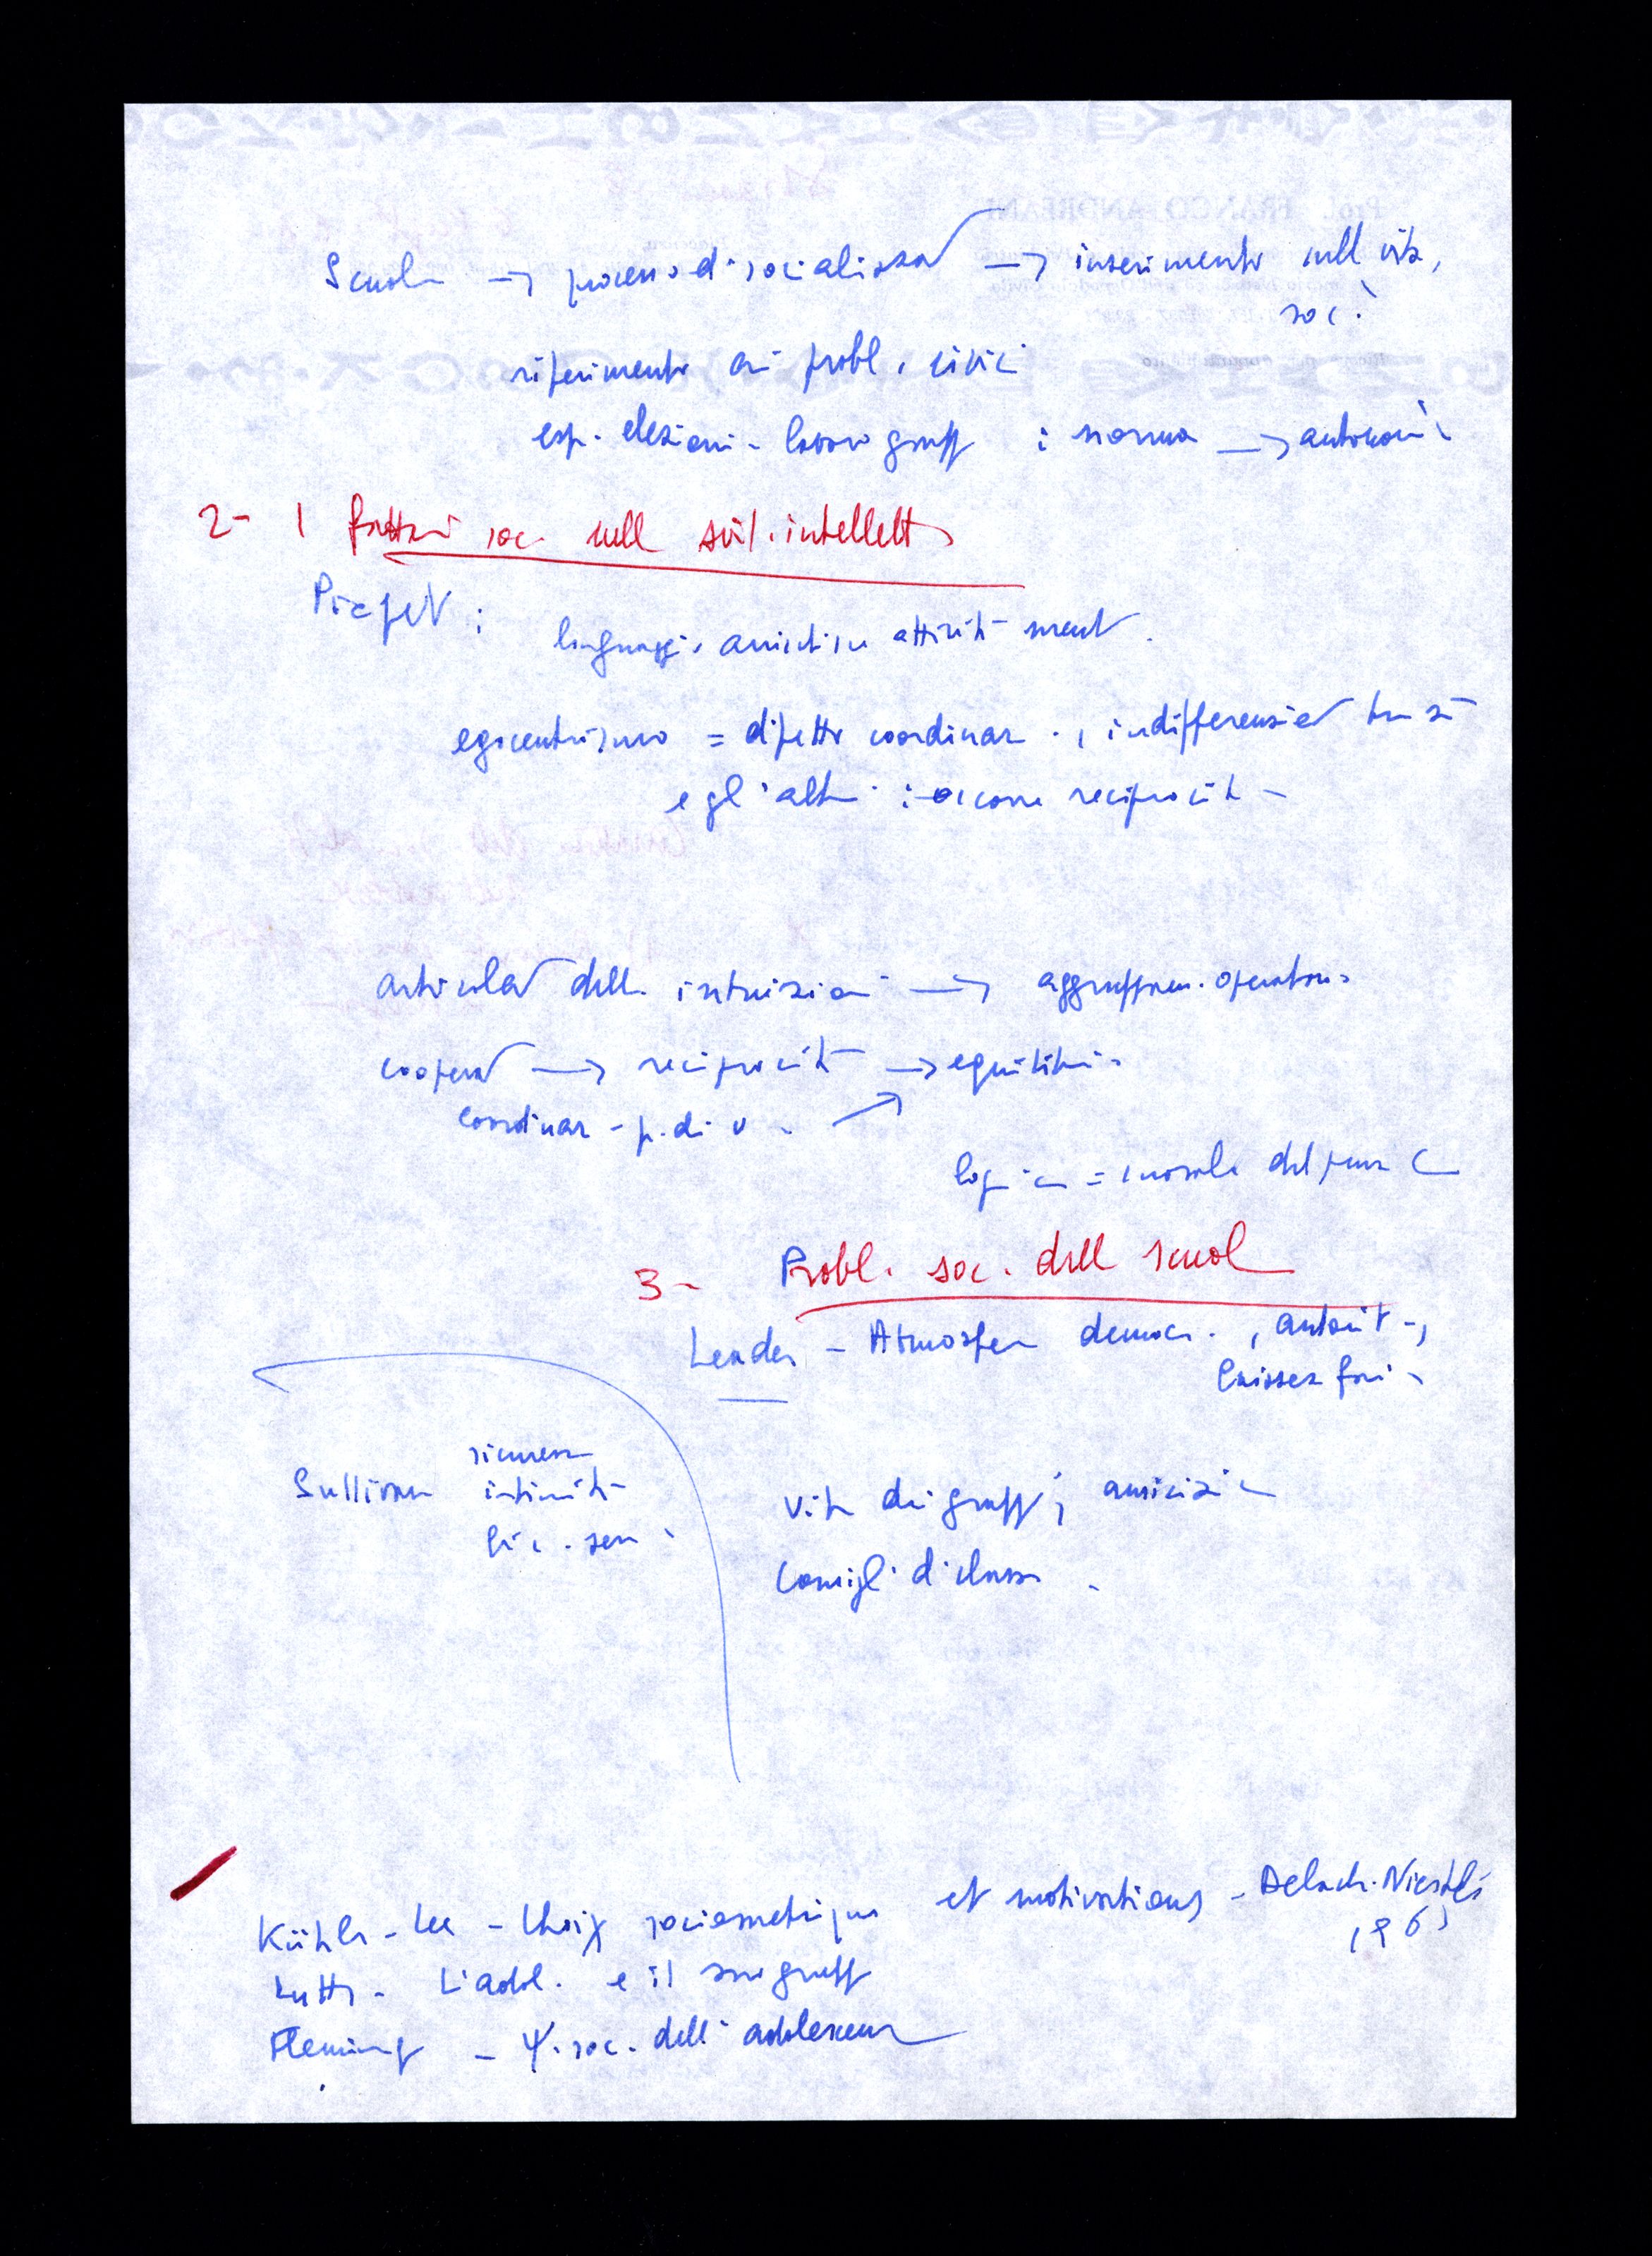 Scuola → processo di socializzaz → inserimento nell vita,
soc.
riferimento ai probl. civici
esp. elezioni - lavoro grupp : norma → autonomi
2- I fattori soc. nell svil. intellett
Piaget :
linguaggi, attività ment.
egocentrismo = difetto coordinaz. , indifferenziaz tra sé
e gli altri : occorre reciprocità
articolaz dell. intuizioni → aggruppam. operatori
cooperaz → reciprocità → equilibri
coordinaz - p. di v.
logica = morale del pens
3- Probl. soc. dell scuol
Leader - Atmosfera democr. , autorit -,
laissez fair
sicurezza
Sullivan intimità
vita dei grupp, amicizia
Consigli di classe
et motivations - Delach. Niestlé
Kühli - Lee - Choix sociometrique
196
Lutte - L'adol. e il suo grupp
Fleming - Ψ. soc. dell' adolescenz